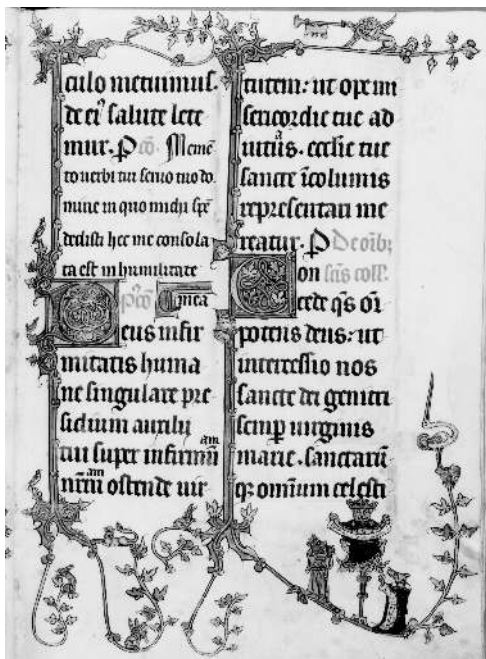 culo metuimus.
de ei9 salute lete
mur. Pco. Meme
to uerbi tui seruo tuo do
mine in quo michi spe
dedisti hec me consola
ta est in humilitate
pco mea
Deus infir
mitatis huma
ne singulare pre
sidium auxilii
tui super infirmu am
nrm am ostende uir
tutem: ut ope mi
sericordie tue ad
iutus. ecclie tue
sancte icolumis
representari me
reatur. P De oib;
Con scis coll.
cede qs oi
potens deus: ut
intercessio nos
sancte dei genitri
semp uirginis
marie. sanctaru
q; omnium celesti